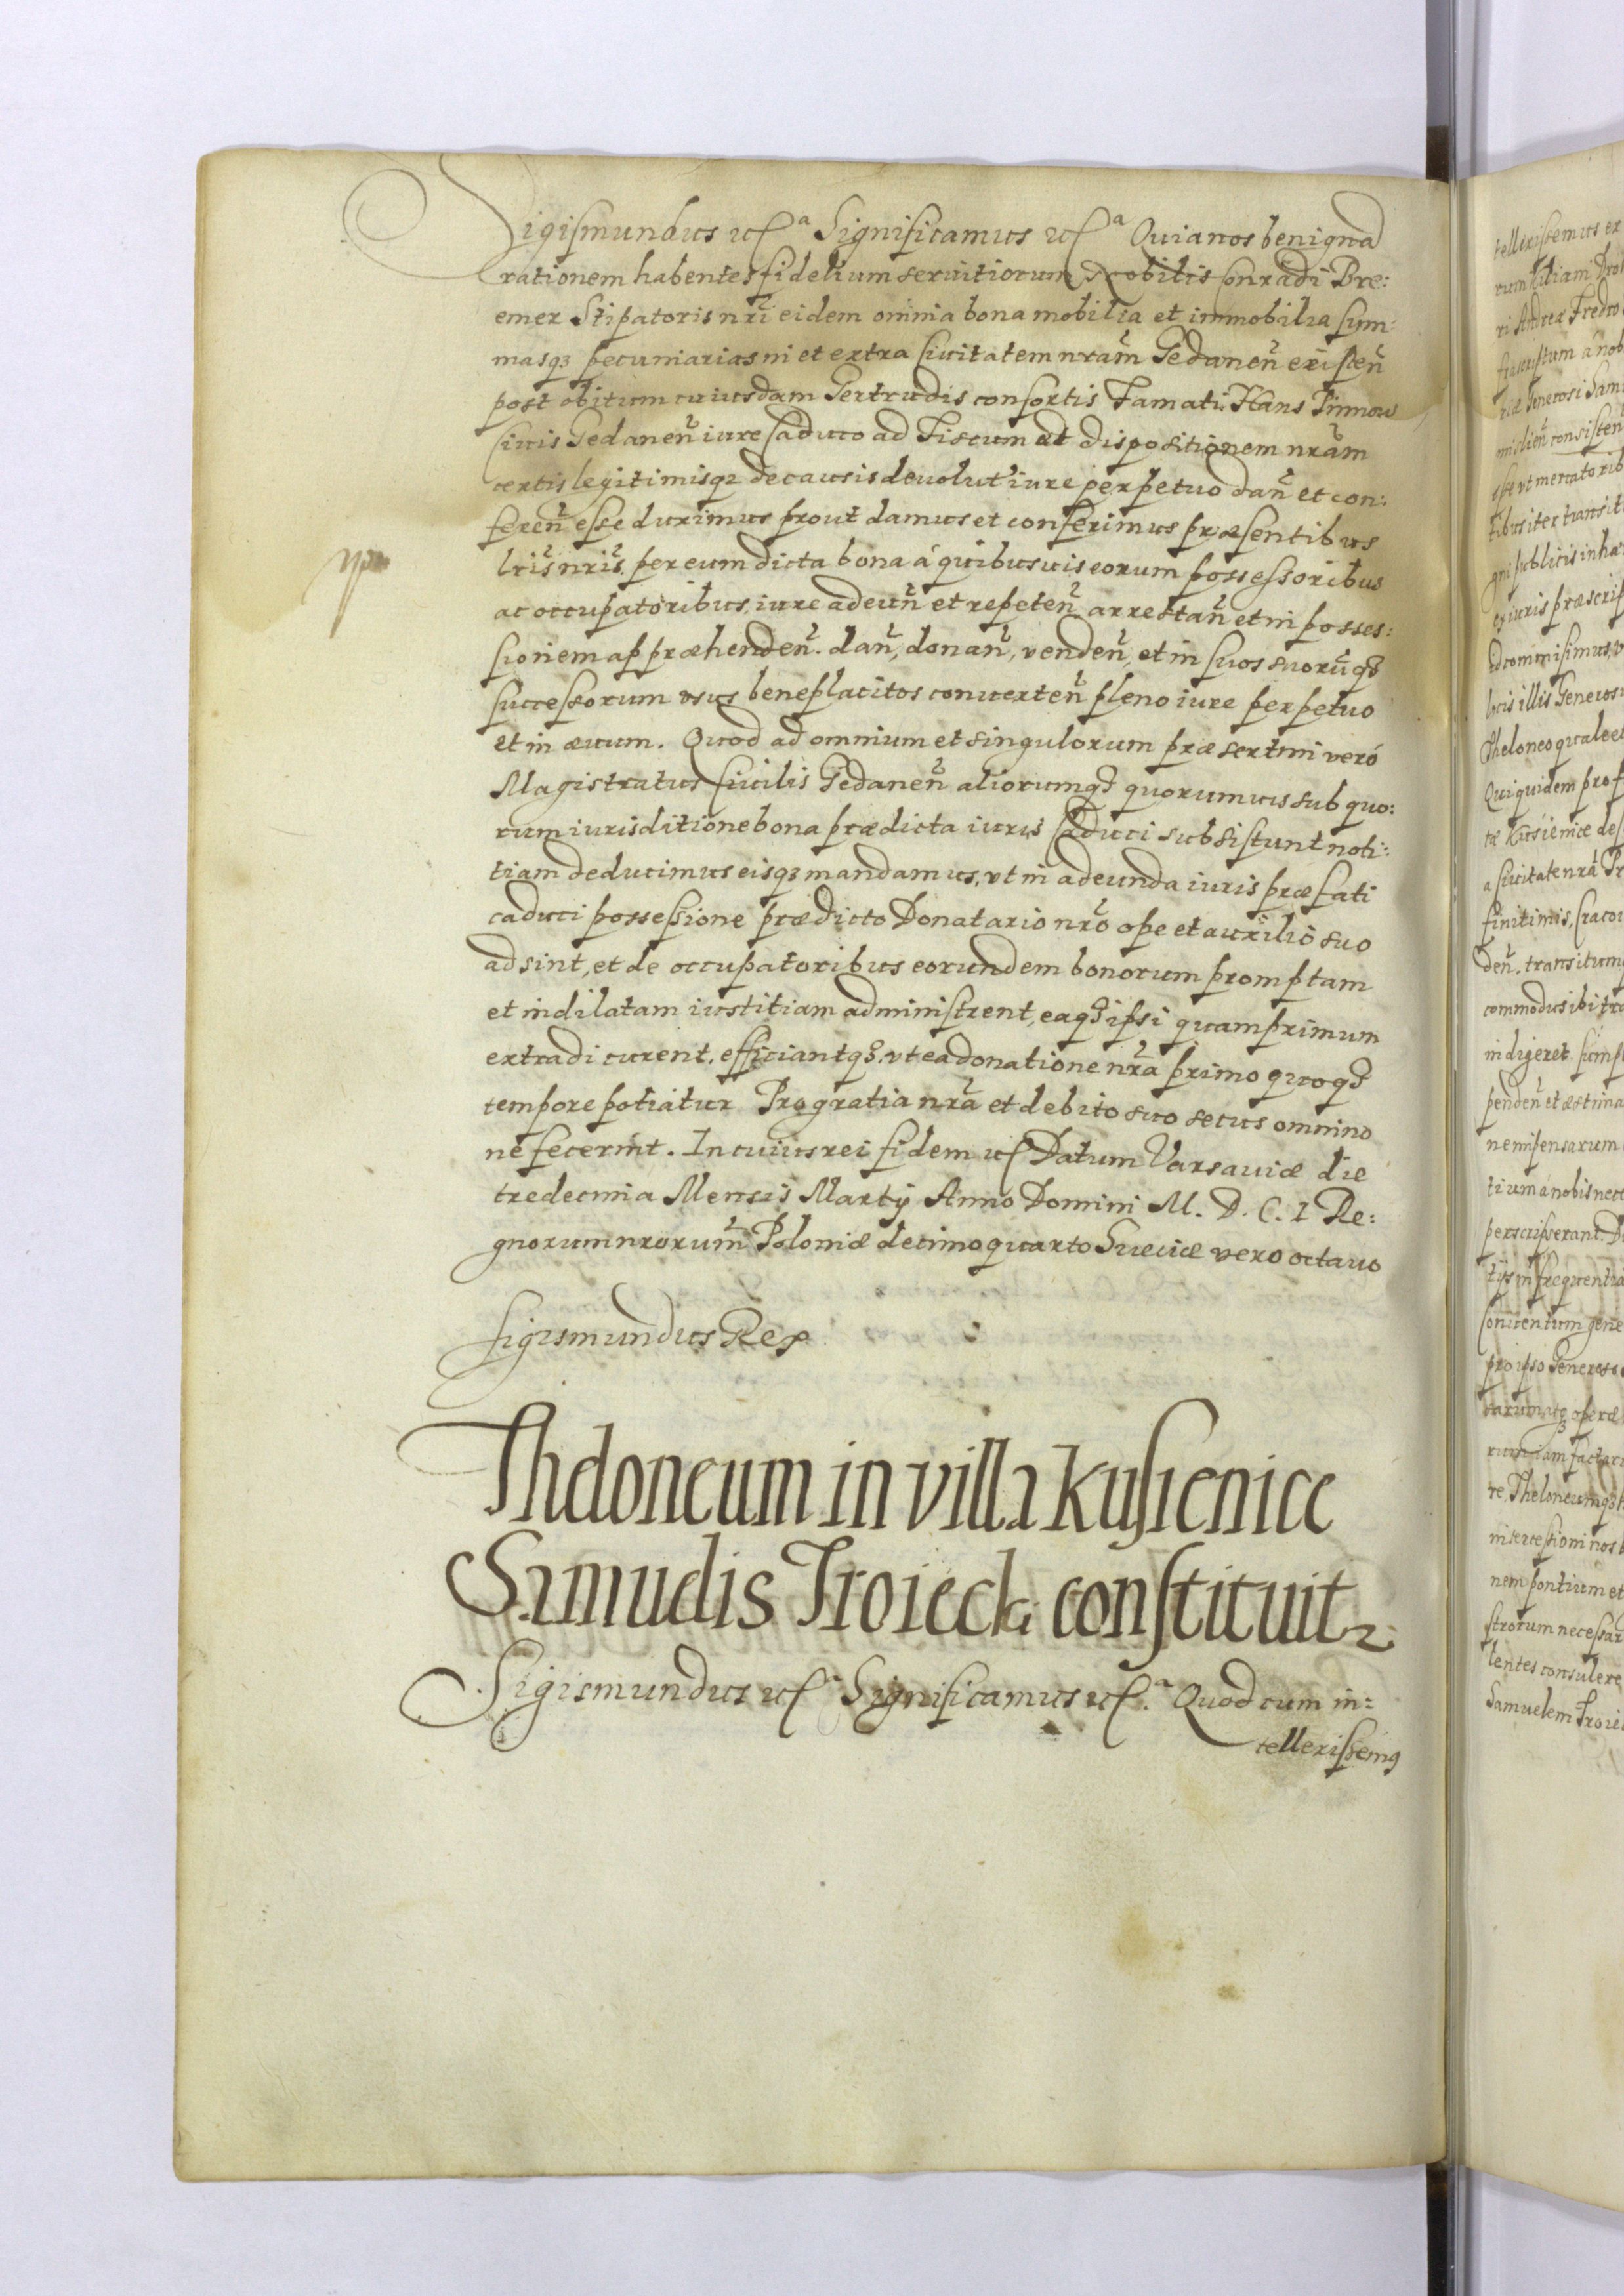 Sigismundus etc̃ᵃ Significamus etc̃ᵃ Quia nos benignã
rationem habentes fidelium seruitiorum Nobilis Conradi Bre:
emer Stipatoris nrĩ eidem omnia bona mobilia et immobilia sum:
masq3 pecuniarias in et extra Ciuitatem nram̃ Gedaneñ existeñ
post obitum cuiusdam Gertrudis consortis Famati Hans Pinnow
Ciuis Gedaneñ iure Caduco ad Fiscum et dispositionem nram̃
certis legitimisq3 de causis deuolut iure perpetuo dañ et con:
fereñ esse duximus prout damus et conferimus præsentibus
lrĩs nrĩs. per eum dicta bona á quibusuis eorum possessoribus
ac occupatoribus iure adeuñ et repeteñ arrestañ et in posses:
sionem appræhendeñ. dañ, donañ, vendeñ, et in suos suorũq3
successorum usus beneplacitos conuerteñ pleno iure perpetuo
et in æuum. Quod ad omnium et singulorum præsertim veró
Magistratus Ciuilis Gedaneñ aliorumq3 quorumuis sub quo:
rum iurisditione bona prædicta iuris Caduci subsistunt noti:
tiam deducimus eisq3 mandamus, vt in adeunda iuris præfati
caduci possessione prædicto Donatario nrõ ope et auxilio suo
adsint, et de occupatoribus eorundem bonorum promptam
et indilatam iustitiam administrent, eaq3 ipsi quamprimum
extradi curent, efficiantq3, vt ea donatione nrã primo quoq3
tempore potiatur Pro gratia nrã et debito suo secus omnino
ne fecerint. In cuius rei fidem etc̃ Datum Varsauiæ die
tredecima Mensis Martij Anno Domini M. D. C. I Re:
gnorum nrorum̃ Poloniæ decimo quarto Sueciæ vero octauo
Sigismundus Rex
Theloneum in villa Kusienice
Samuelis Troiecki constituit2
Sigismundus etc̃ᵃ Significamus etc̃.ᵃ Quod cum in:
tellexissemus